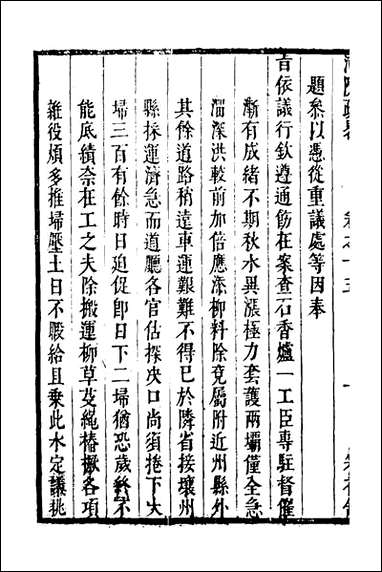 題叅以憑從重議處等因奉
旨依議行欽遵通飭在案查石香爐一工臣專駐督催
漸有成緒不期秋水異漲極力套護兩壩僅全急
溜深洪較前加倍應添柳料除兗屬附近州縣外
其餘道路稍遠車運艱難不得已於隣省接壤州
縣採運濟急而道廳各官估探决口尚須捲下大
埽三百有餘時日迫促卽日下二埽猶恐歲終不
能底績奈在工之夫除搬運柳草芟䋲樁橛各項
雜役煩多推埽壓土日不暇給且乘此水定議挑
卷之十五